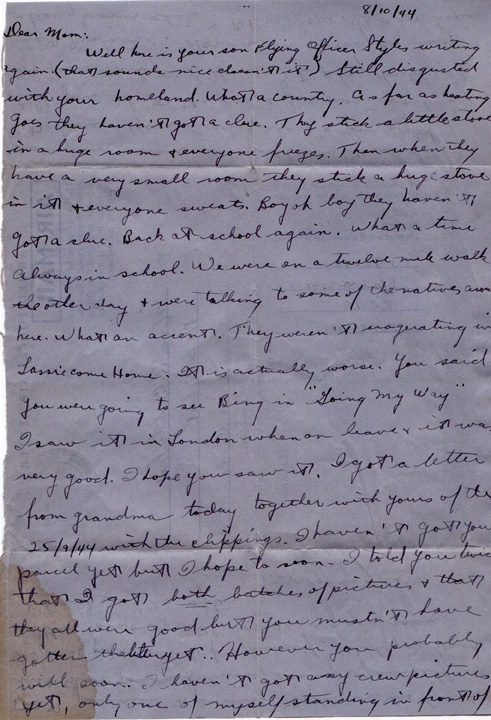 8/10/44
Dear Mom:
Well here is your son Flying Officer Styles writing
again (that sounds nice doesn't it) Still disgusted
with your homeland. What a country. As far as heating
goes they haven't got a clue. They stick a little stove
in a huge room & everyone freezes. Then when they
have a very small room they stick a huge stove
in it & everyone sweats. Boy oh boy they haven't
got a clue. Back at school again. What a time
always in school. We were on a twelve mile walk
the other day & were talking to some of the natives
here. What an accent. They weren't exagerating in
Lassie come Home. It is actually worse. You said
you were going to see Bing in "Going My Way"
I saw it in London when on leave & it was
very good. I hope you saw it. I got a letter
from grandma today together with yours of the
25/9/44 with the clippings. I haven't got your
parcel yet but I hope to soon. I told you twice
that I got both batches of pictures & that
they all were good but you mustn't have
gotten the letter yet.. However you probably
will soon.. I haven't got any crew pictures
yet, only one of myself standing in front of